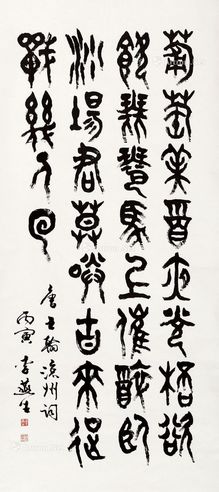 葡萄美酒夜光杯欲
飲琵琶馬上催醉臥
沙場君莫笑古來征
戰幾人回
唐王翰涼州詞
丙寅李燕生